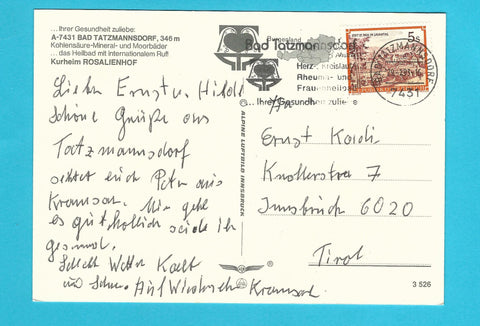 ...Ihrer Gesundheit zuliebe:
A-7431 BAD TATZMANNSDORF, 346 m
Kohlensäure-Mineral- und Moorbäder
... das Heilbad mit internationalem Ruf!
Kurheim ROSALIENHOF
Liebe Ernst u. Hilde
Schöne Grüße aus
Tatzmannsdorf
sendet euch Peter aus
Kramsach. Mir geht
es gut hoffentlich seid Ihr
gesund.
Schlecht Wetter Kalt
und Schnee. Auf Wiedersehn Kramsach
ALPINE LUFTBILD INNSBRUCK
Burgenland
Bad Tatzmannsdorf
Herz-Kreislauf
Rheuma- und
Frauenheilbad
...Ihrer Gesundheit zuliebe
5s
BAD TATZMANNSDORF
7431
An
Ernst
Knollerstra 7
Innsbruck 6020
Tirol
3 526